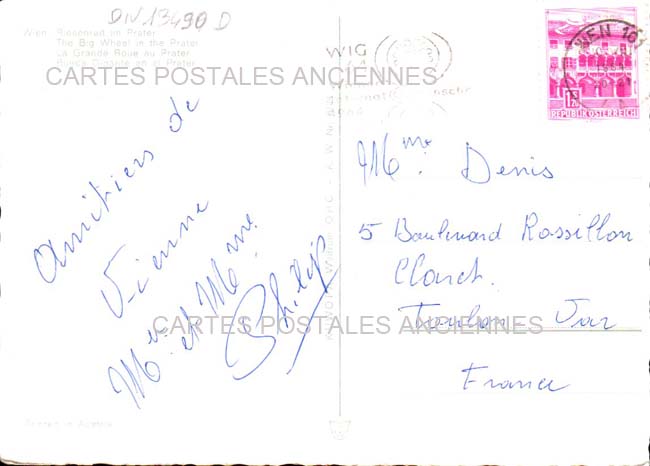 DIV 13490 D
Wien, Riesenrad im Prater
The Big Wheel in the Prater
La Grande Roue au Prater
CARTES POSTALES ANCIENNES
amitiers de
Vienne
Mr. et Mme.
Philip
CARTES POSTALES ANCIENNES
Printed in Austria
WIG
1964
WIEN
REPUBLIK ÖSTERREICH
Mme. Denis
5 Boulevard Rossillon
Claret.
Toulon Var
France